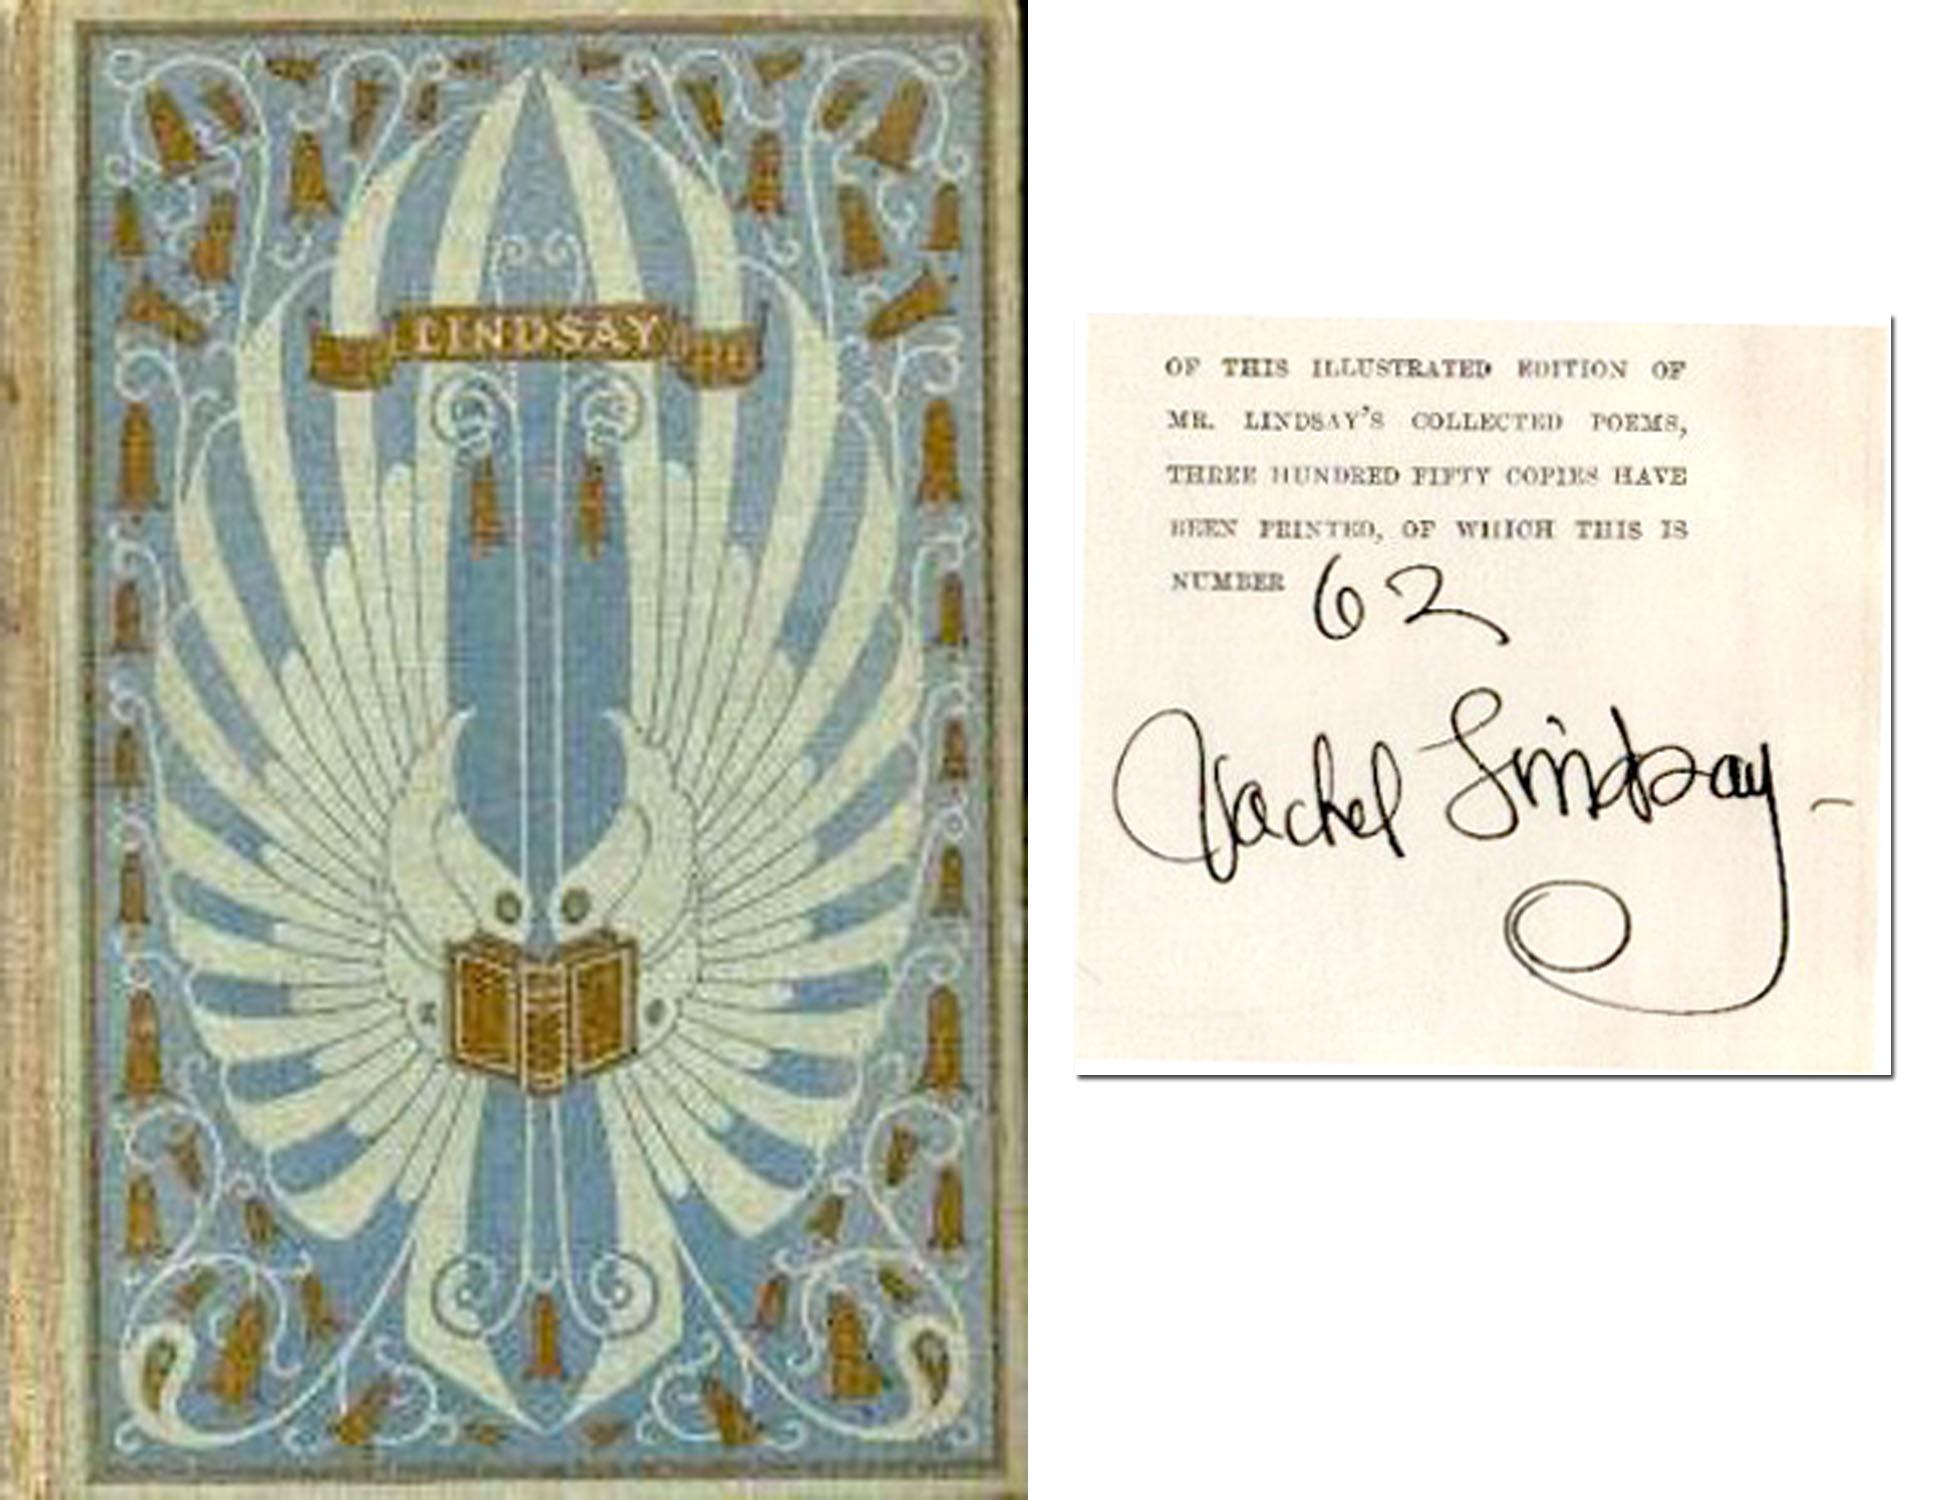 LINDSAY
OF THIS ILLUSTRATED EDITION OF
MR. LINDSAY'S COLLECTED POEMS,
THREE HUNDRED FIFTY COPIES HAVE
BEEN PRINTED, OF WHICH THIS IS
NUMBER 62
Vachel Lindsay –